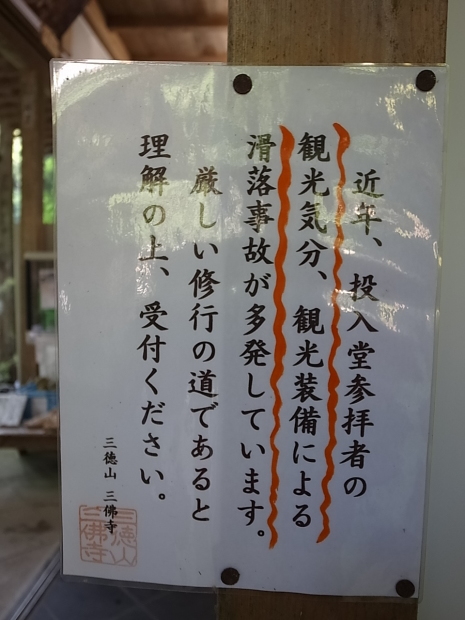 近年、投入堂参拝者の
観光気分、観光装備による
滑落事故が多発しています。
厳しい修行の道であると
理解の上、受付ください。
三徳山 三佛寺
三徳山
三佛寺